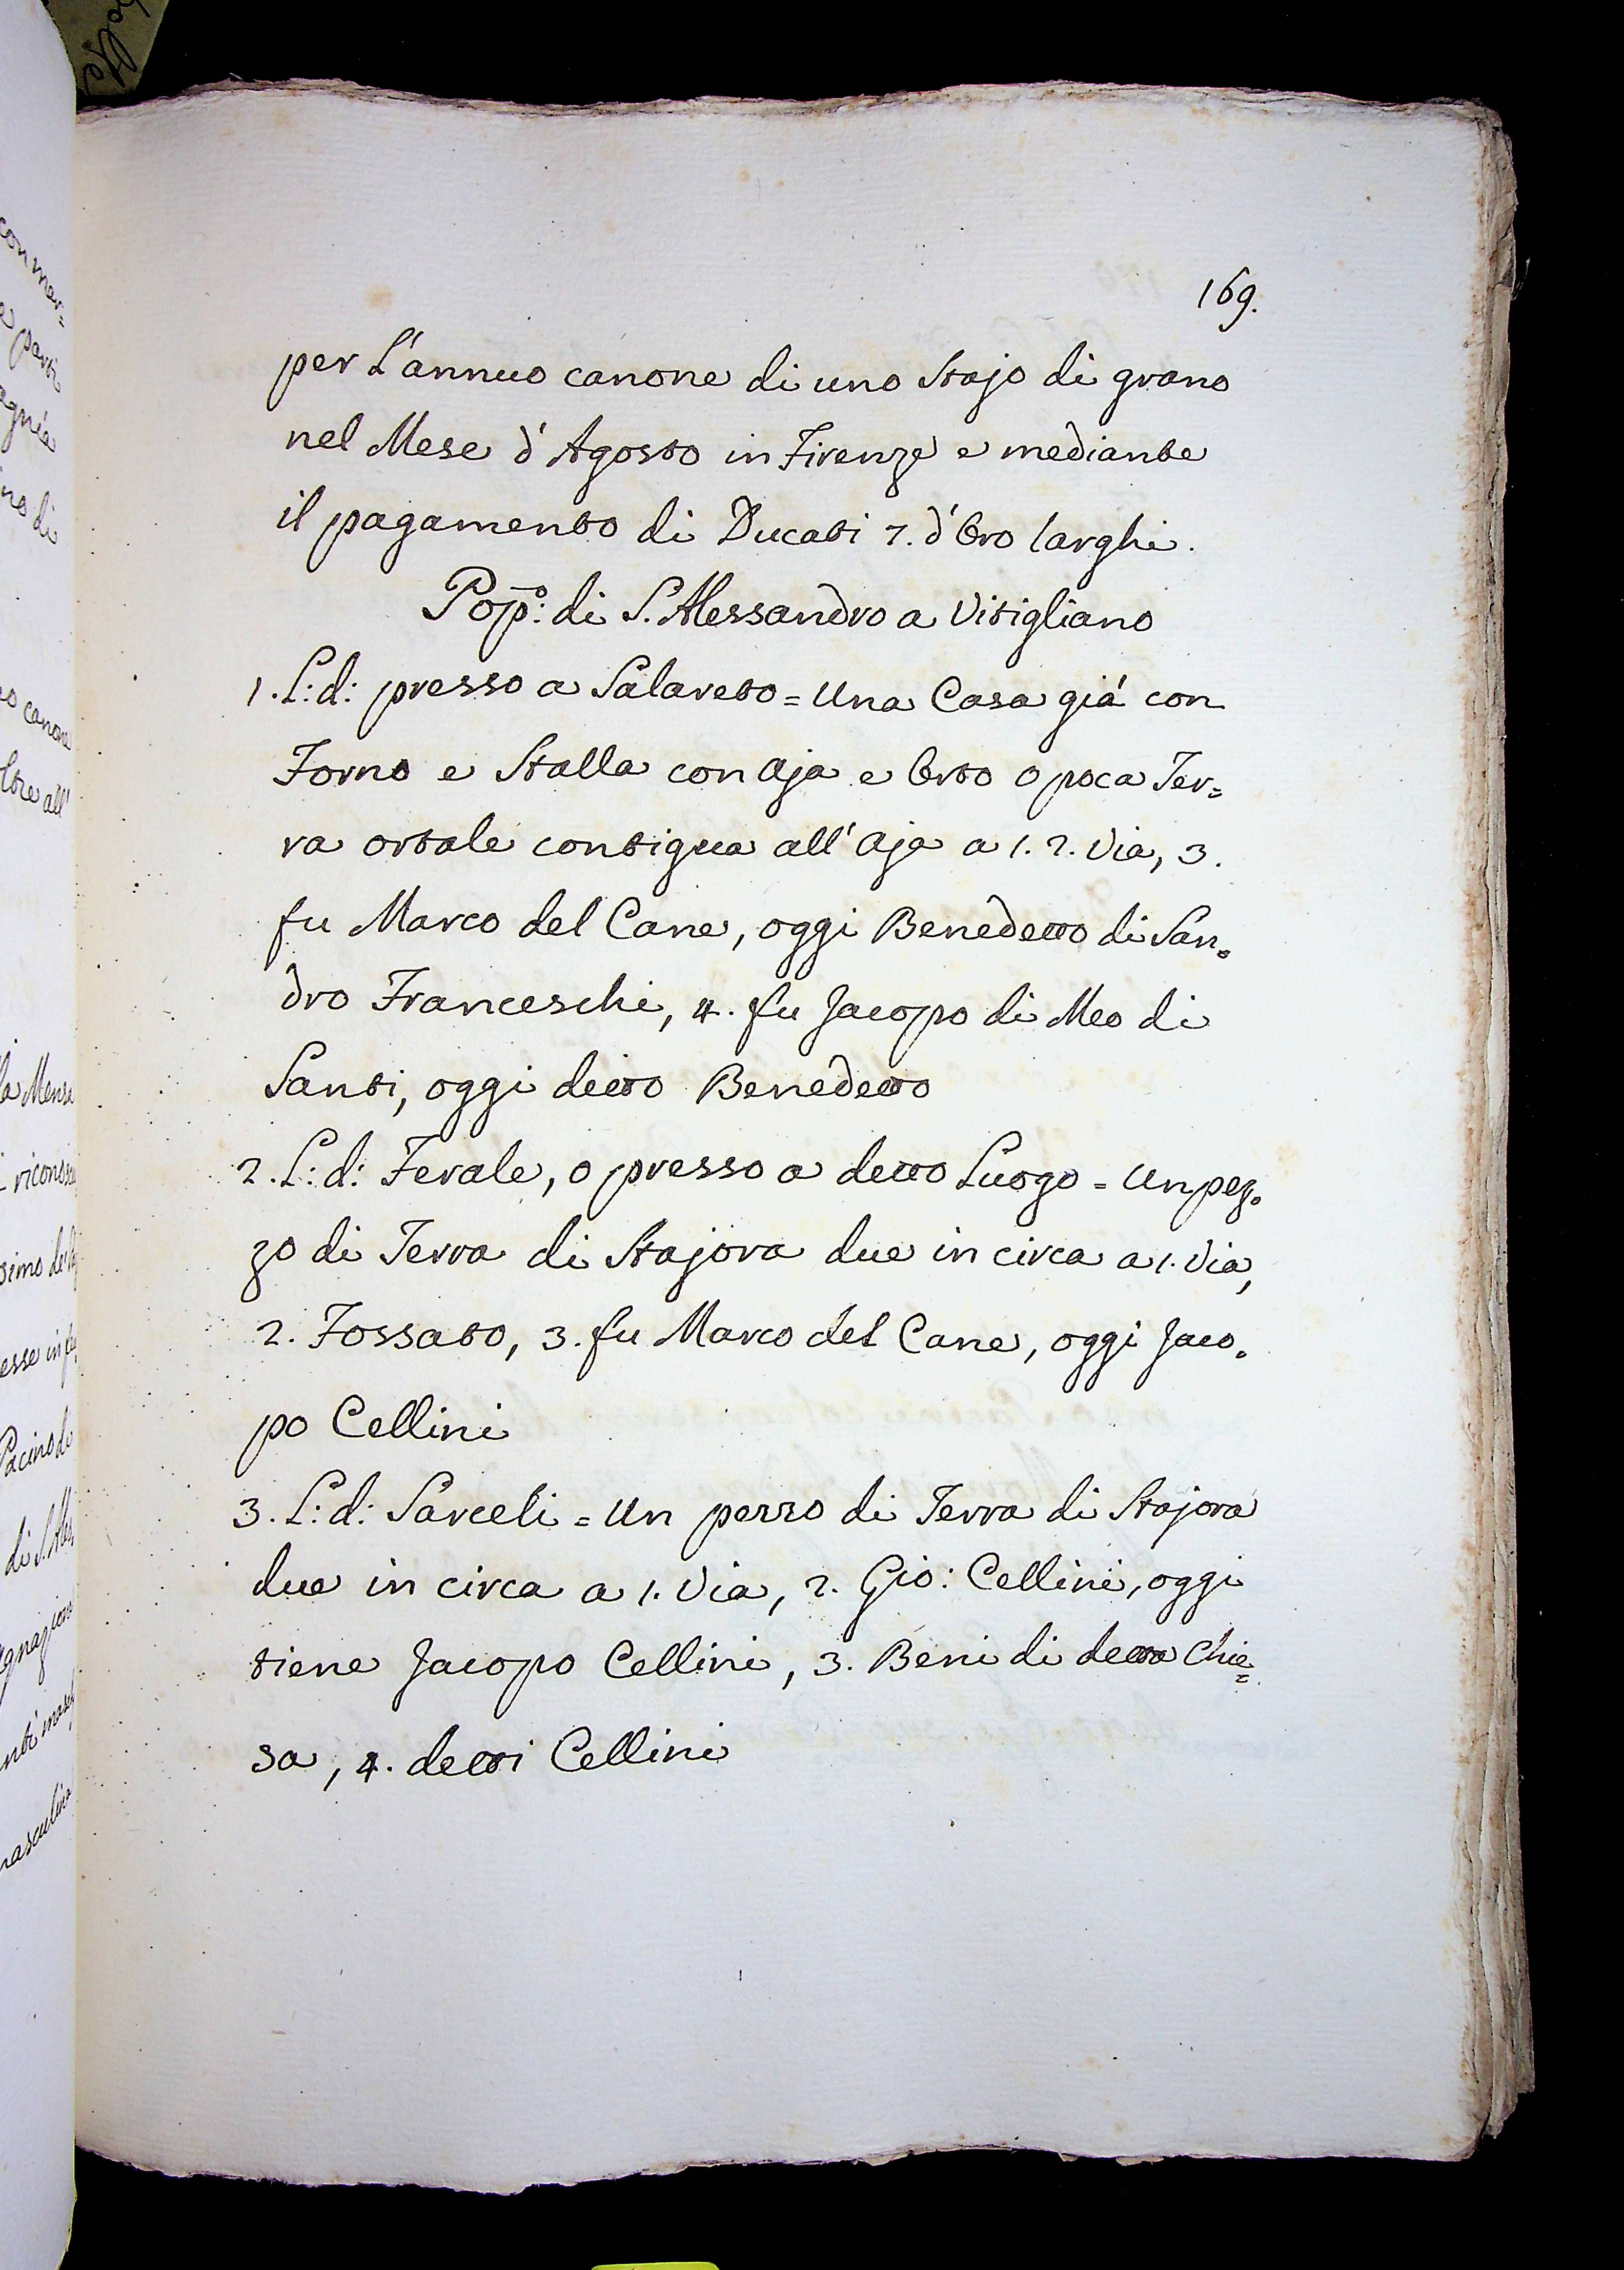 169.
per L'annuo canone di uno Stajo di grano
nel Mese d'Agosto in Firenze e mediante
il pagamento di Ducati 7. d'Oro larghi.
Pop.º: di S. Alessandro a Vitigliano
1. L: d: presso a Salareto = Una Casa giá con
Forno e Stalla con Aja e Orto o poca Ter=
ra ortale contigua all'Aja a 1. 2. Via, 3.
fu Marco del Cane, oggi Benedetto di San=
dro Franceschi, 4. fu Jacopo di Meo di
Santi, oggi detto Benedetto
2. L: d: Ferale, o presso a detto Luogo = Un pez=
zo di Terra di Stajora due in circa a 1. Via,
2. Fossato, 3. fu Marco del Cane, oggi Jaco=
po Cellini
3. L: d: Sarceli = Un pezzo di Terra di Stajora
due in circa a 1. Via, 2. Gio: Cellini, oggi
tiene Jacopo Cellini, 3. Beni di detta Chie=
sa, 4. detti Cellini